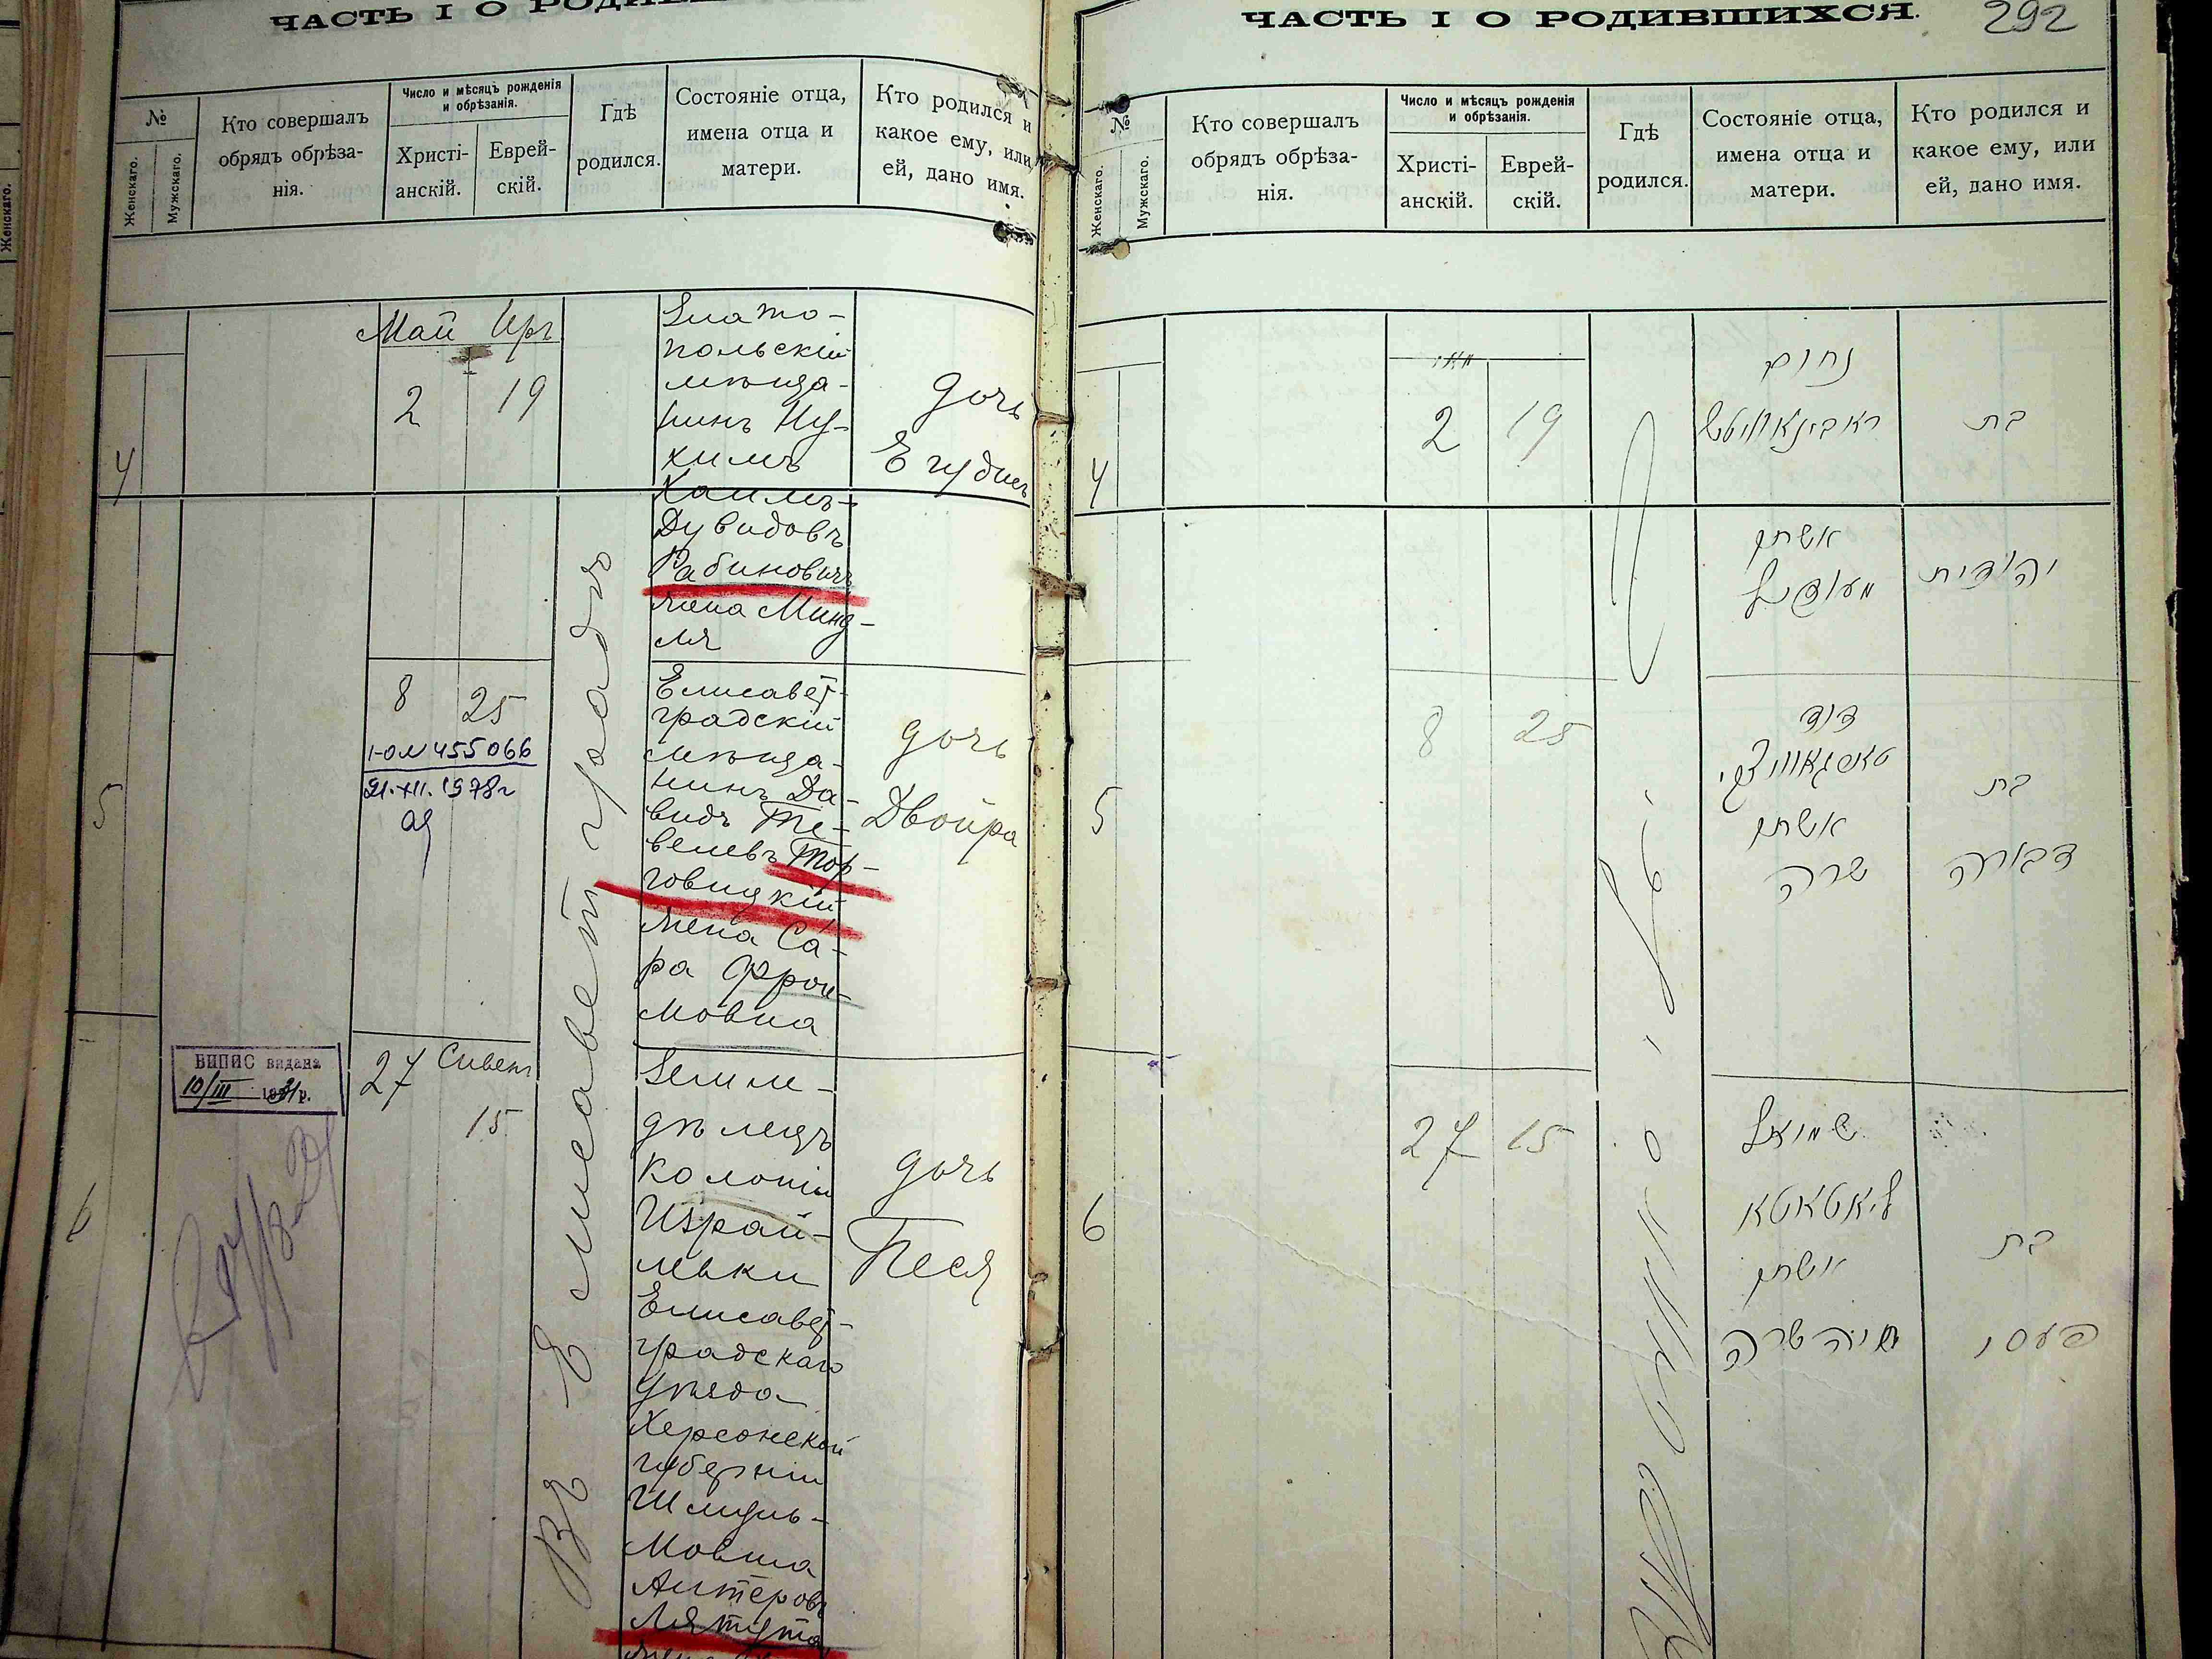 ЧАСТЬ I О РОДИВШИХСЯ.
№
Женскаго.
Мужскаго.
Кто совершалъ
обрядъ обрѣза-
нія.
Число и мѣсяцъ рожденія
и обрѣзанія.
Христі-
анскій.
Еврей-
скій.
Гдѣ
родился.
Состояніе отца,
имена отца и
матери.
Кто родился и
какое ему, или
ей, дано имя.
4
Май Іръ
2 19
Злато-
польскій
мѣща-
нинъ Ну-
химъ
Хаимъ-
Дувидовъ
Рабиновичъ
жена Минд-
ля
дочь
Егудисъ
Въ Елисаветградѣ
5
8 25
I-ОЛ 455066
21.XII.1978г
Елисавет-
градскій
мѣща-
нинъ Да-
видъ Те-
велевъ Тор-
говицкій
жена Са-
ра Фрои-
мовна
дочь
Двойра
6
ВИПИС видана
10/III
27 Сивенъ
15
Земле-
дѣлецъ
колоніи
Израй-
левки
Елисавет-
градскаго
уѣзда
Херсонской
губерніи
Шмуль-
Мовша
Антеровъ
Лятута
дочь
Песя
ЧАСТЬ I О РОДИВШИХСЯ.
292
№
Женскаго.
Мужскаго.
Кто совершалъ
обрядъ обрѣза-
нія.
Число и мѣсяцъ рожденія
и обрѣзанія.
Христі-
анскій.
Еврей-
скій.
Гдѣ
родился.
Состояніе отца,
имена отца и
матери.
Кто родился и
какое ему, или
ей, дано имя.
4
2 19
נחום
ראבינאוויטש
אשתו
בת
יהודית
5
8 25
דוד
אשתו
שרה
בת
דבורה
6
27 15
שמואל
ליאטאטא
אשתו
חיה שרה
בת
פעסי